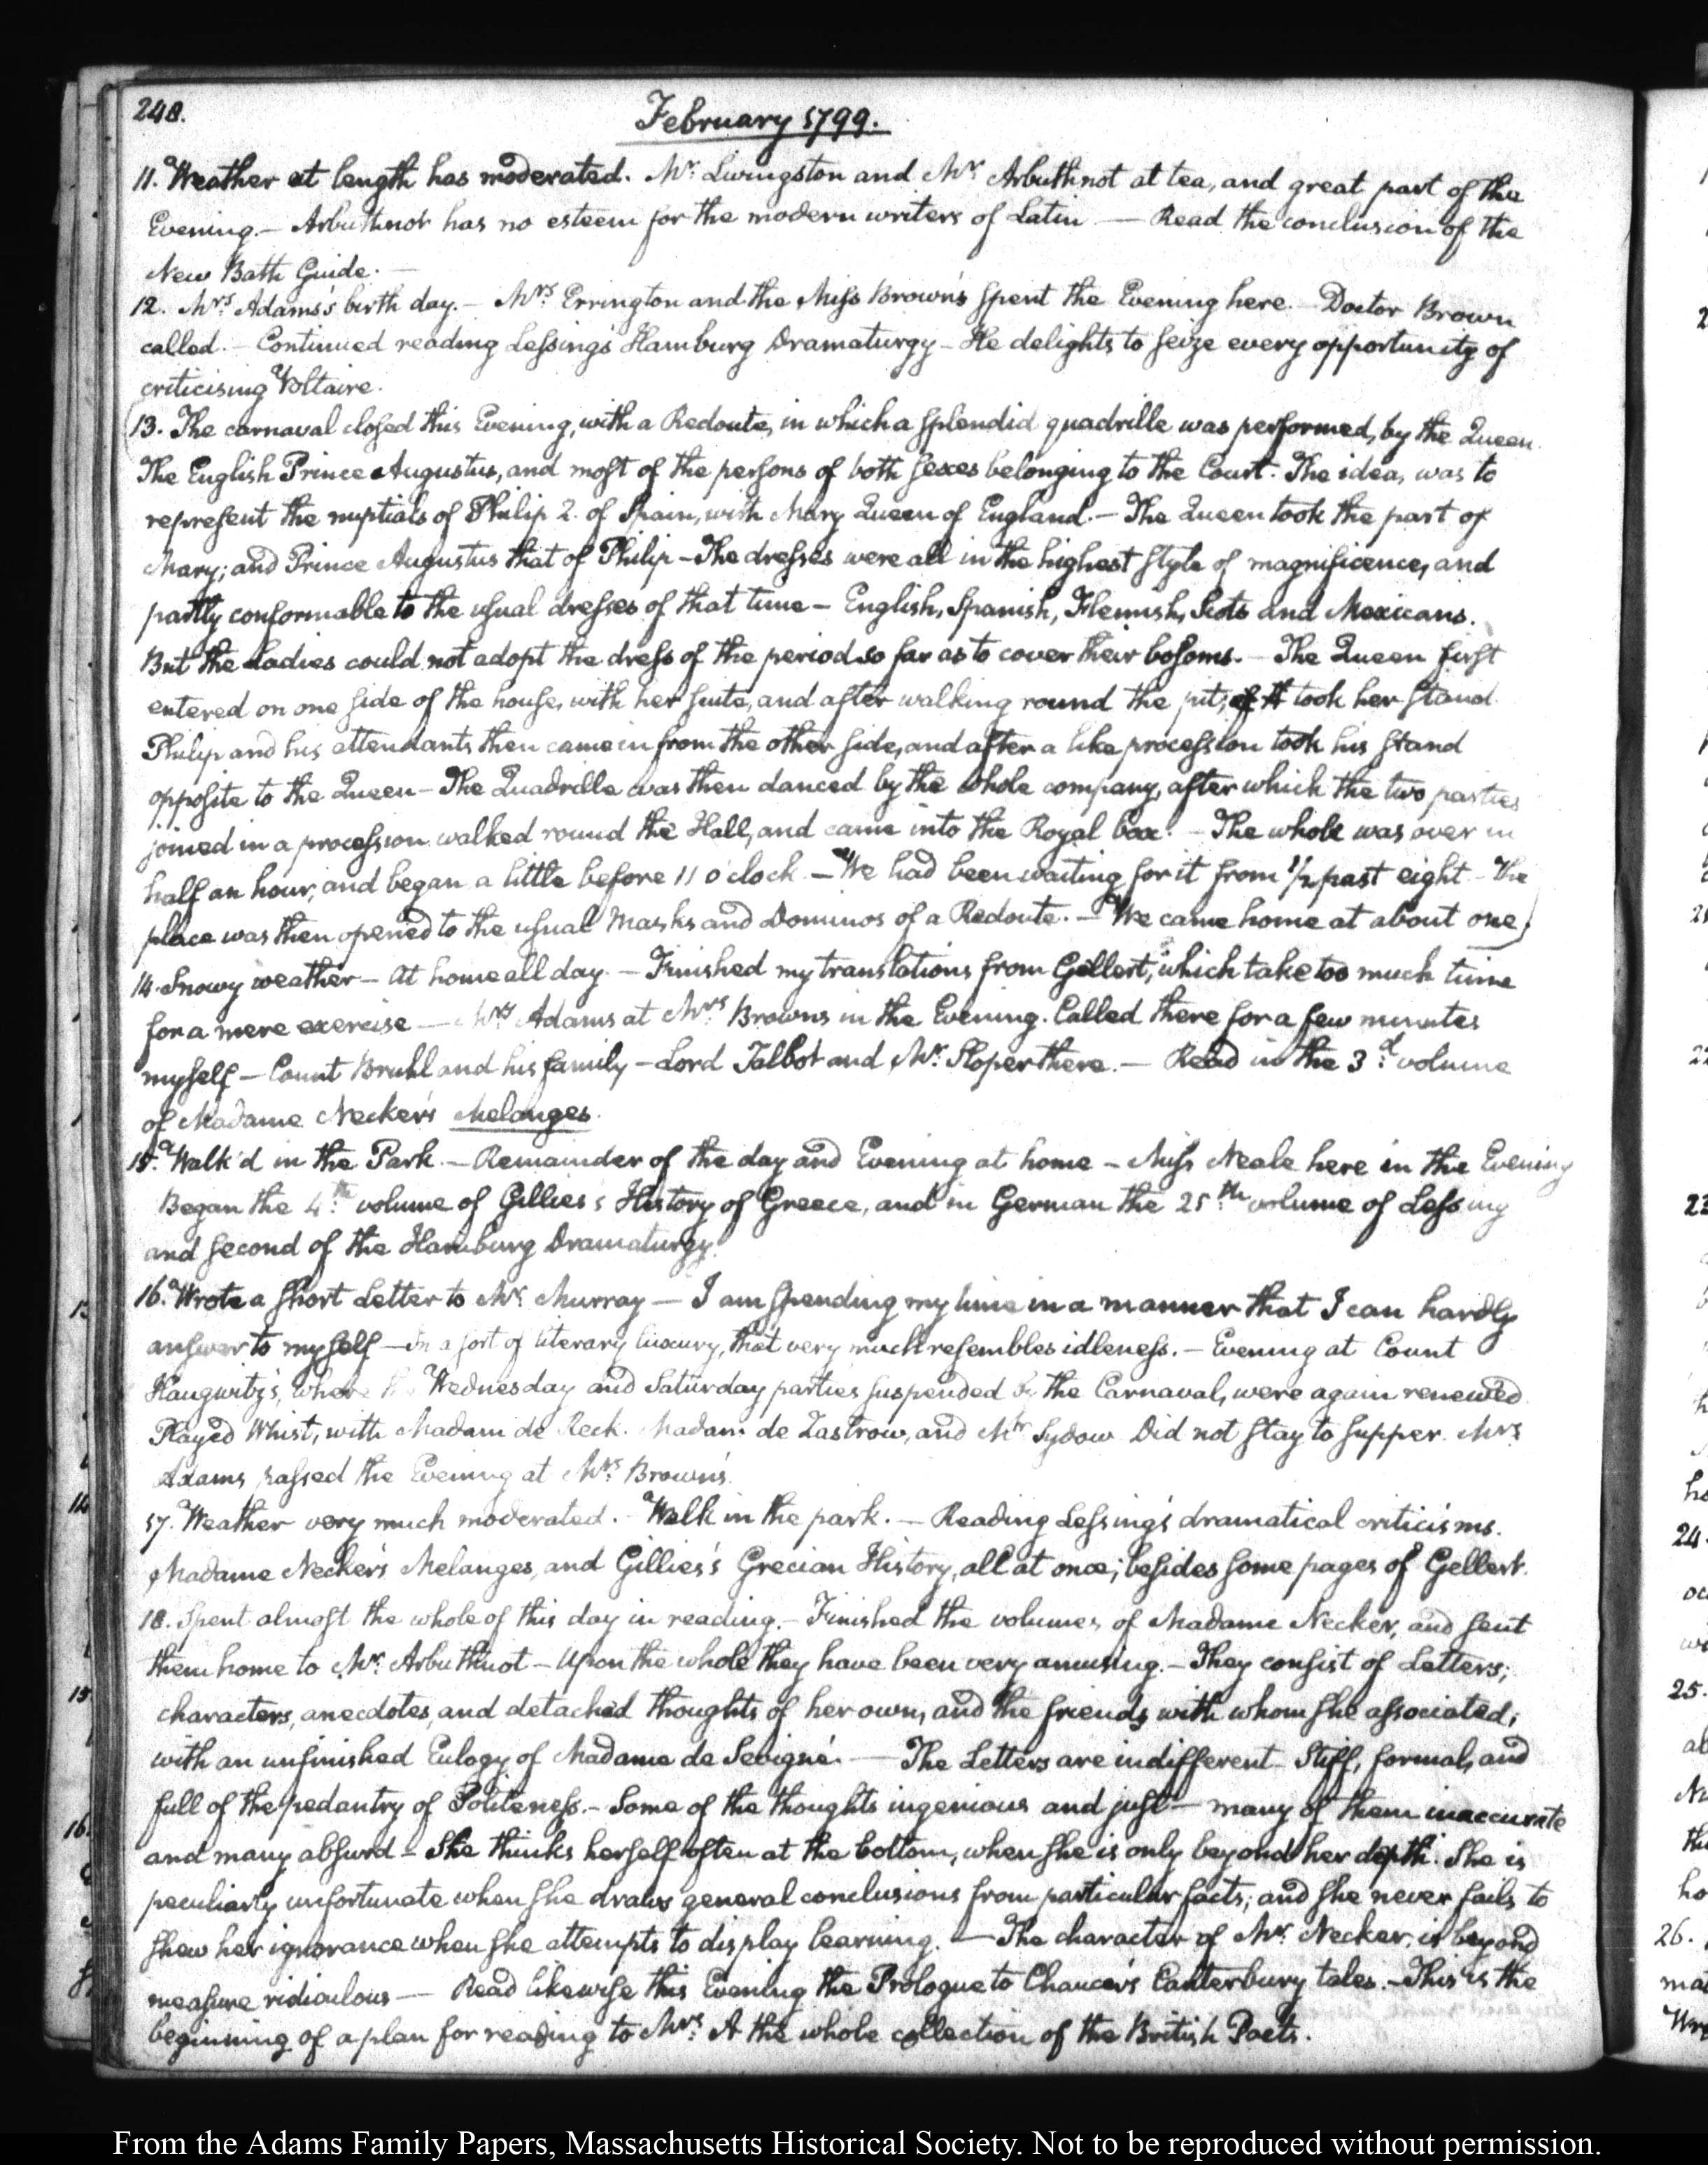 248.
February 1799.
11. Weather at length has moderated. Mr. Livingston and Mr. Arbuthnot at tea, and great part of the
Evening.— Arbuthnot has no esteem for the modern writers of Latin — Read the conclusion of the
New Bath Guide. —
12. Mrs. Adams's birth day.— Mrs. Errington and the Miss Brown's spent the Evening here. Doctor Brown
called.— Continued reading Lessing's Hamburg Dramaturgy— He delights to seize every opportunity of
criticising Voltaire.
13. The carnaval closed this Evening, with a Redoute, in which a splendid quadrille was performed, by the Queen
The English Prince Augustus, and most of the persons of both sexes belonging to the Court. The idea, was to
represent the nuptials of Philip 2. of Spain, with Mary Queen of England.— The Queen took the part of
Mary; and Prince Augustus that of Philip— The dresses were all in the highest style of magnificence, and
partly conformable to the usual dresses of that time— English, Spanish, Flemish, Scots and Mexicans.
But the Ladies could not adopt the dress of the period so far as to cover their bosoms.— The Queen first
entered on one side of the house, with her suite, and after walking round the pit, took her stand
Philip and his attendants then came in from the other side, and after a like procession took his stand
opposite to the Queen— The Quadrille was then danced by the whole company, after which the two parties
joined in a procession walked round the Hall, and came into the Royal box.— The whole was over in
half an hour, and began a little before 11 o'clock— We had been waiting for it from 1/2 past eight— The
place was then opened to the usual Masks and Dominos of a Redoute.— We came home at about one)
14. Snowy weather— At home all day.— Finished my translations from Gellert, which take too much time
for a mere exercise— Mrs. Adams at Mrs. Browns in the Evening. Called there for a few minutes
myself— Count Bruhl and his family— Lord Talbot and Mr. Sloper there.— Read in the 3d. volume
of Madame Necker's Melanges.
15. Walk'd in the Park.— Remainder of the day and Evening at home— Miss Neale here in the Evening
Began the 4th. volume of Gillies's History of Greece, and in German the 25th volume of Lessing
and second of the Hamburg Dramaturgy.
16. Wrote a short Letter to Mr. Murray— I am spending my time in a manner that I can hardly
answer to myself— In a sort of literary luxury, that very much resembles idleness.— Evening at Count
Haugwitz's, where the Wednesday and Saturday parties suspended by the Carnaval, were again renewed
Played Whist, with Madam de Reck. Madam de Zastrow, and Mr. Sydow Did not stay to supper. Mrs.
Adams passed the Evening at Mrs. Brown's.
17. Weather very much moderated.— Walk in the park.— Reading Lessing's dramatical criticisms.
Madame Necker's Melanges, and Gillies's Grecian History, all at once; besides some pages of Gellert.
18. Spent almost the whole of this day in reading.— Finished the volumes of Madame Necker, and sent
them home to Mr. Arbuthnot— Upon the whole they have been very amusing.— They consist of Letters;
characters, anecdotes, and detached thoughts of her own, and the friends with whom she associated;
with an unfinished Eulogy of Madame de Sevigné.— The Letters are indifferent— Stiff, formal, and
full of the pedantry of Politeness.— Some of the thoughts ingenious and just— many of them inaccurate
and many absurd— She thinks herself often at the bottom, when she is only beyond her depth. She is
peculiarly unfortunate when she draws general conclusions from particular facts; and she never fails to
shew her ignorance when she attempts to display learning.— The character of Mr. Necker, is beyond
measure ridiculous— Read likewise this Evening the Prologue to Chaucer's Canterbury tales.— This is the
beginning of a plan for reading to Mrs. A the whole collection of the British Poets.
From the Adams Family Papers, Massachusetts Historical Society. Not to be reproduced without permission.